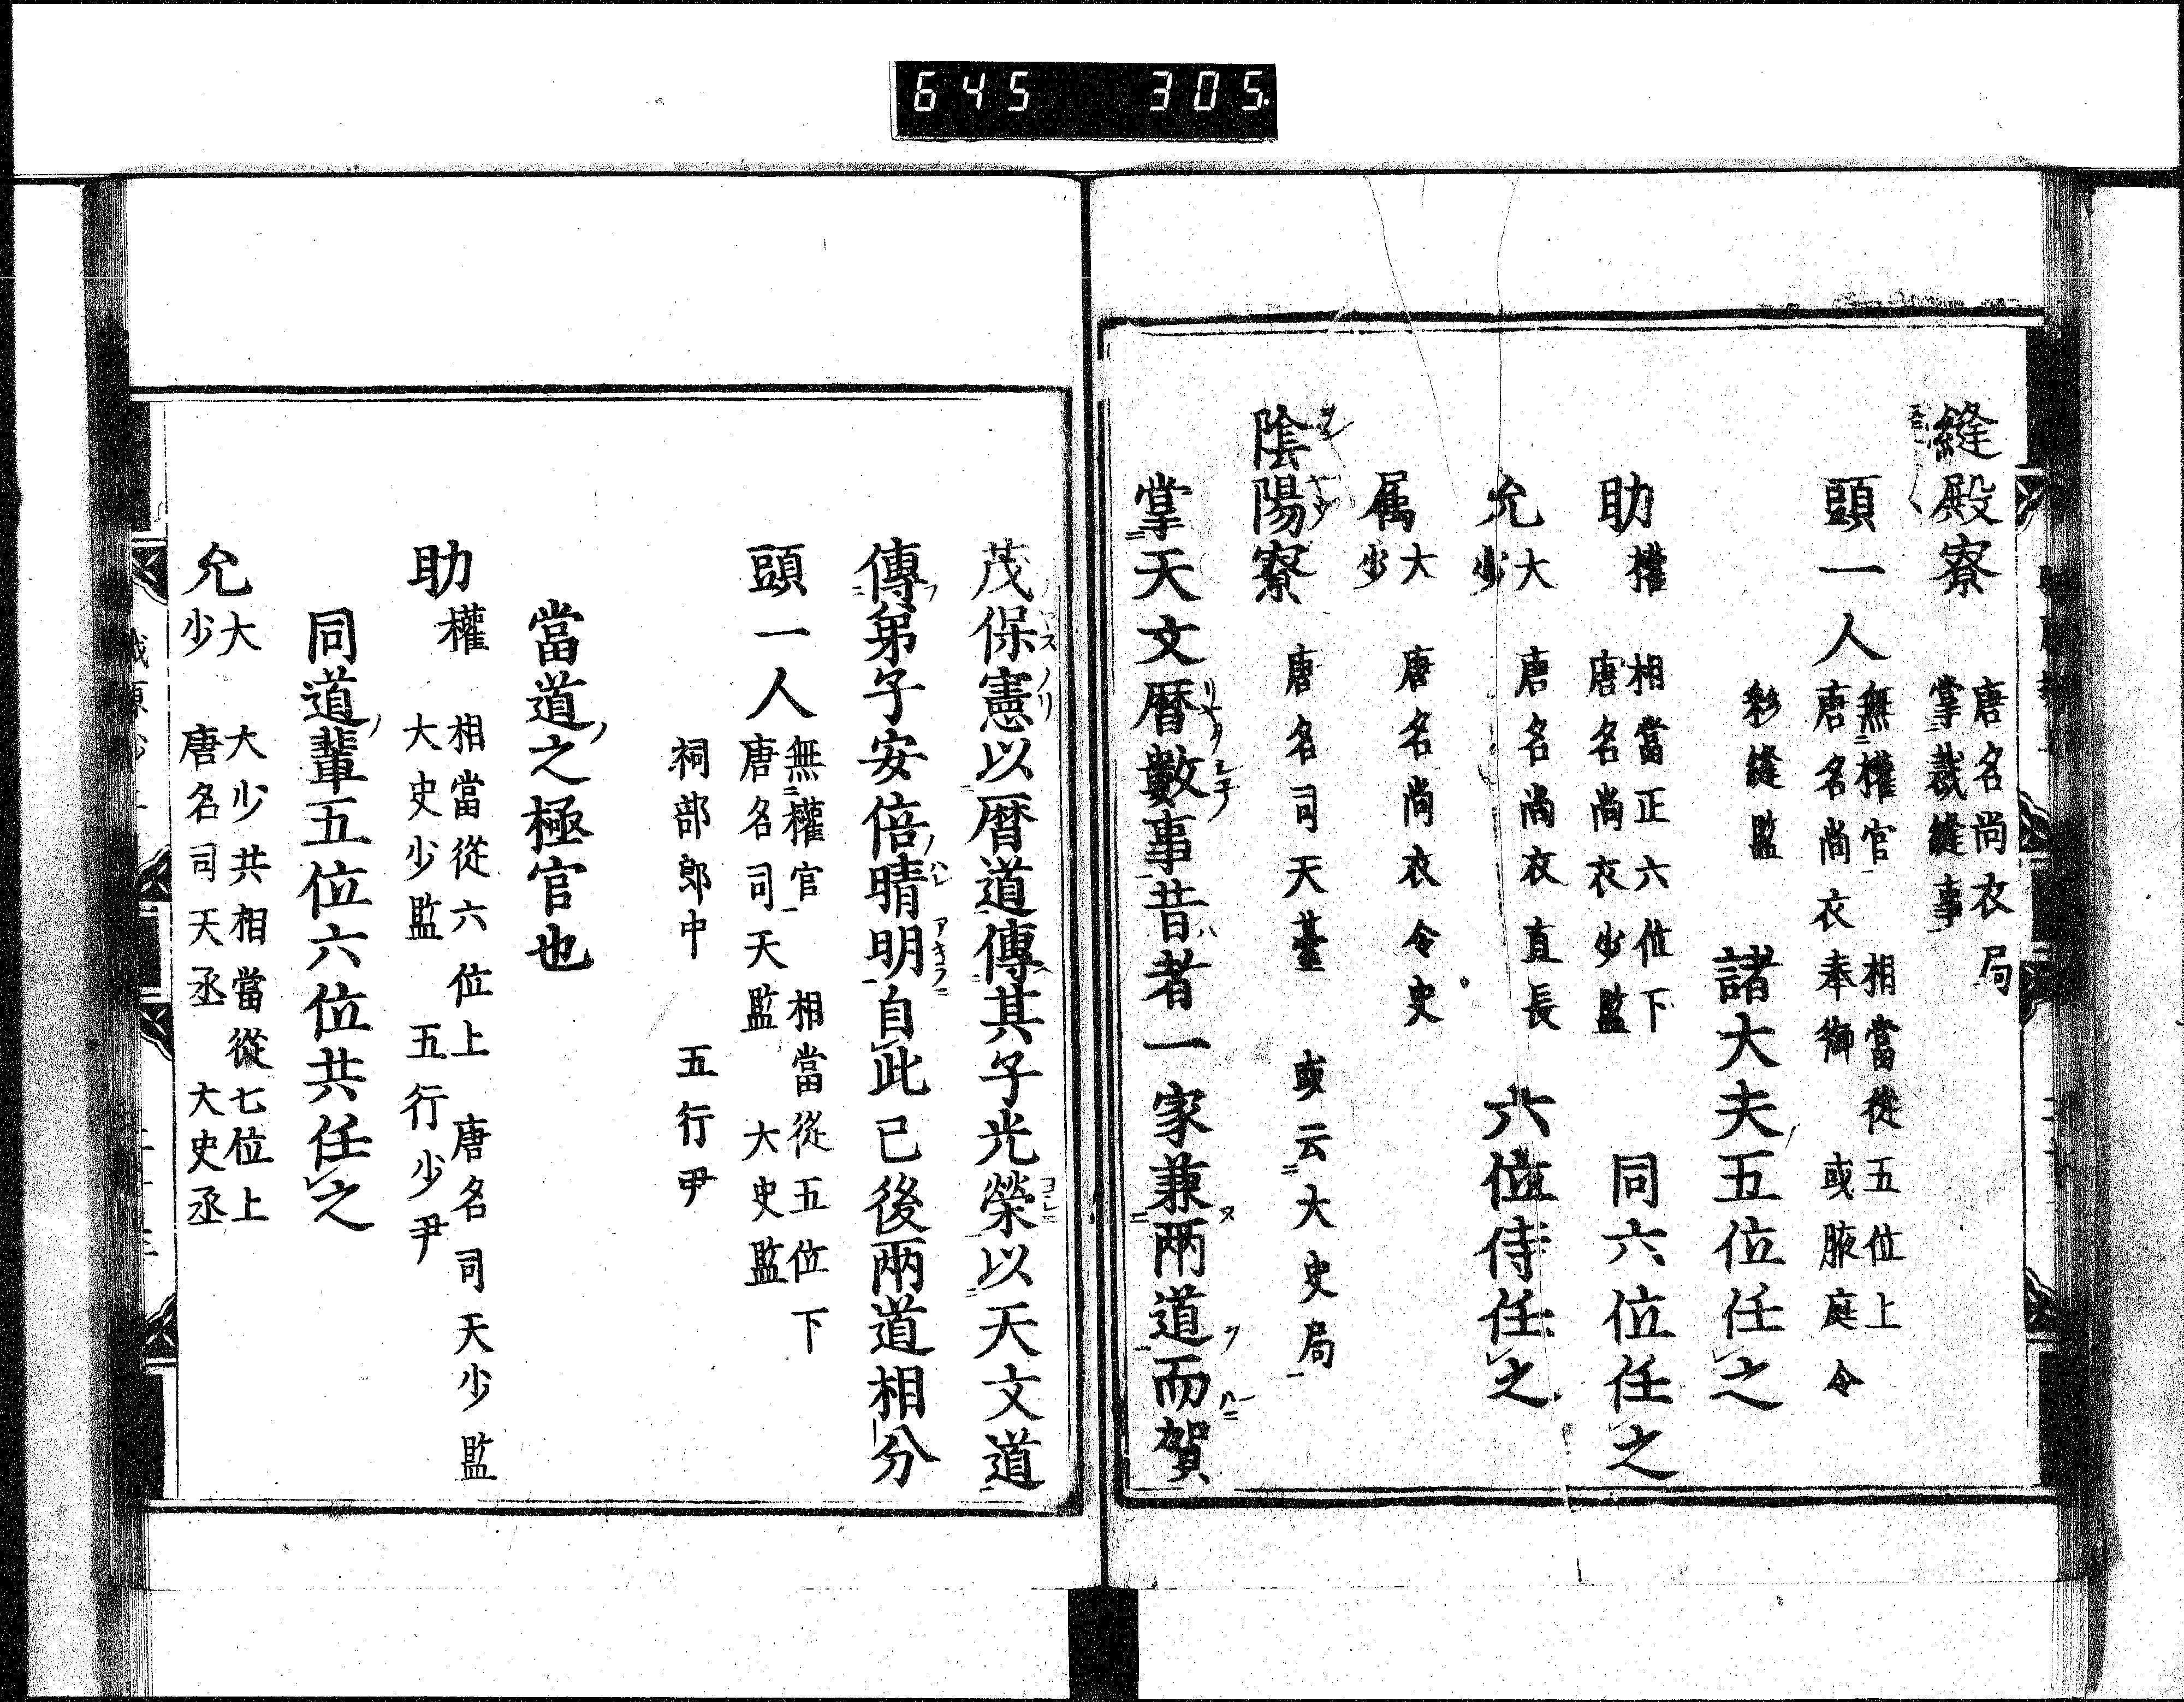 645 305
縫殿寮 唐名尚衣局
掌裁縫事
頭一人 無權官 相當從五位上
唐名尚衣奉御 或腋庭令
彩縫監 諸大夫五位任之
助 權 相當正六位下
唐名尚衣少監 同六位任之
允 大少 唐名尚衣直長 六位侍任之
属 大少 唐名尚衣令史
陰陽寮 唐名司天臺 或云大史局
掌天文暦數事昔者一家兼兩道而賀
茂保憲以暦道傳其子光榮以天文道
傳弟子安倍晴明自此已後兩道相分
頭一人 無權官 相當從五位下
唐名司天監 大史監
祠部郎中 五行尹
當道之極官也
助 權 相當從六位上 唐名司天少監
大史少監 五行少尹
同道輩五位六位共任之
允 大少 大少共相當從七位上
唐名司天丞 大史丞